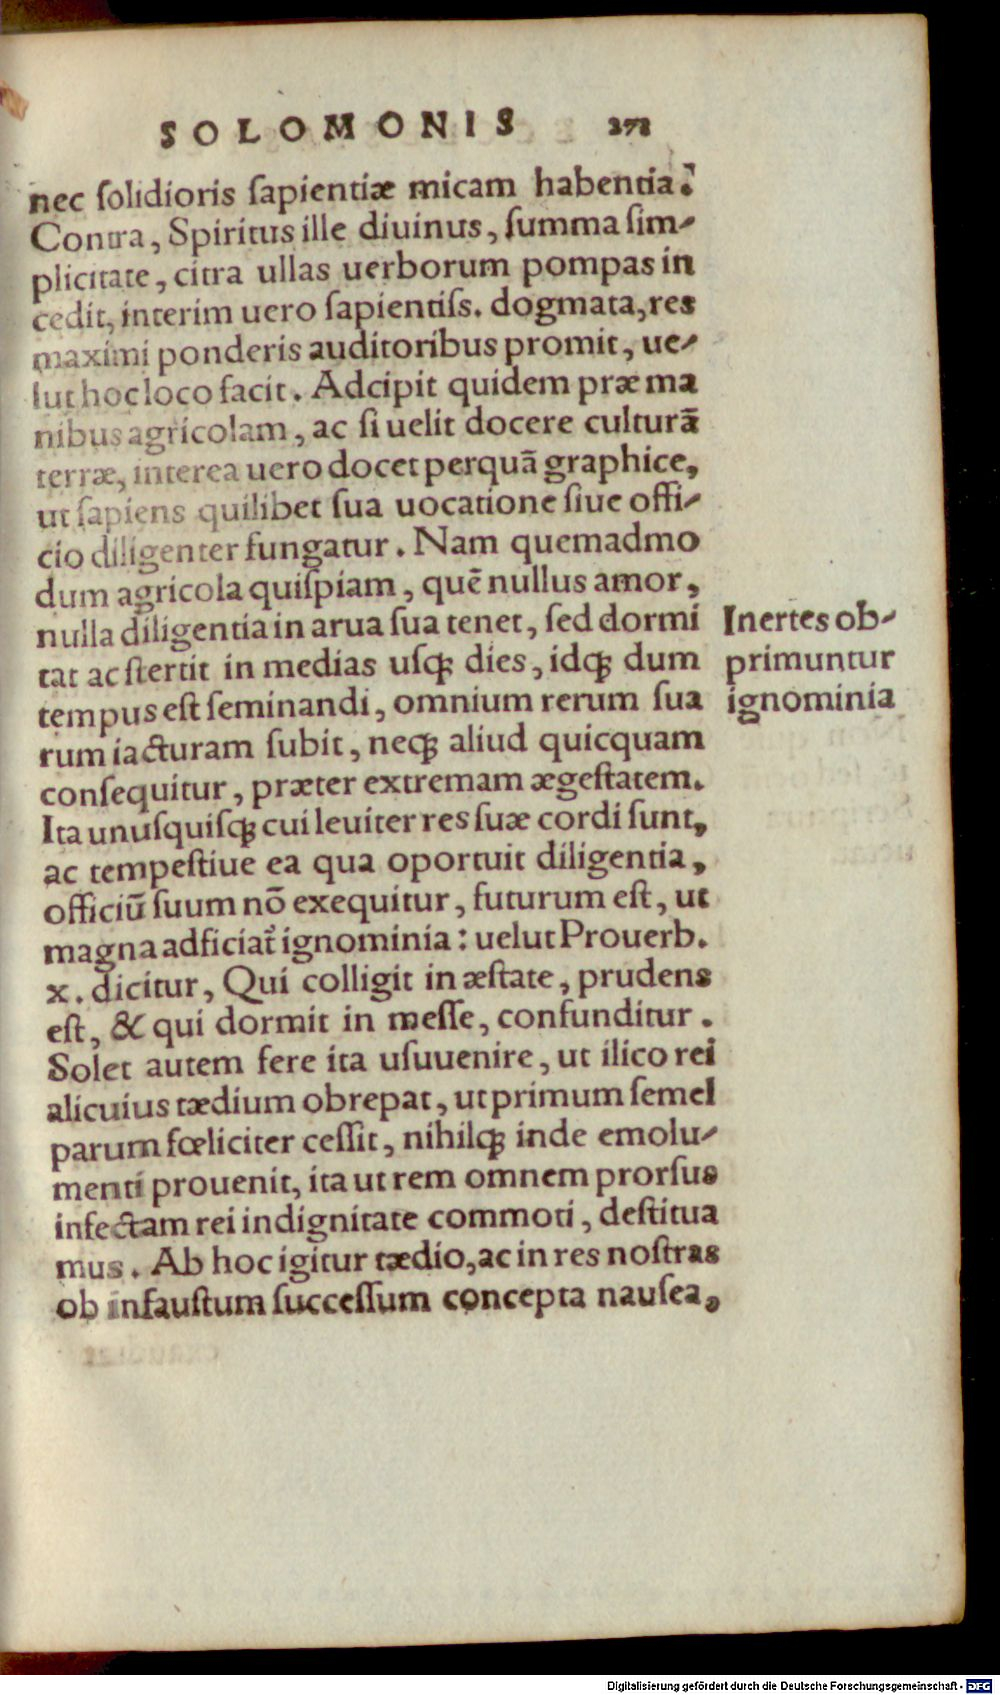 SOLOMONIS 272
nec ſolidioris ſapientiæ micam habentia?
Contra, Spiritus ille diuinus, ſumma ſim-
plicitate, citra ullas uerborum pompas in
cedit, interim uero ſapientiſs. dogmata, res
maximi ponderis auditoribus promit, ue-
lut hoc loco facit. Adcipit quidem præ ma
nibus agricolam, ac ſi uelit docere culturā
terræ, interea uero docet perquā graphice,
ut ſapiens quilibet ſua uocatione ſiue offi-
cio diligenter fungatur. Nam quemadmo
dum agricola quiſpiam, quē nullus amor,
nulla diligentia in arua ſua tenet, ſed dormi
tat ac ſtertit in medias uſqꝫ dies, idqꝫ dum
tempus eſt ſeminandi, omnium rerum ſua
rum iacturam ſubit, neqꝫ aliud quicquam
conſequitur, præter extremam ægeſtatem.
Ita unuſquiſqꝫ cui leuiter res ſuæ cordi ſunt,
ac tempeſtiue ea qua oportuit diligentia,
officiū ſuum nō exequitur, futurum eſt, ut
magna adficiat᷑ ignominia: uelut Prouerb.
x. dicitur, Qui colligit in æſtate, prudens
eſt, & qui dormit in meſſe, confunditur.
Solet autem fere ita uſuuenire, ut ilico rei
alicuius tædium obrepat, ut primum ſemel
parum fœliciter ceſſit, nihilqꝫ inde emolu-
menti prouenit, ita ut rem omnem prorſus
infectam rei indignitate commoti, deſtitua
mus. Ab hoc igitur tædio, ac in res noſtras
ob infauſtum ſucceſſum concepta nauſea,
Inertes ob-
primuntur
ignominia
Digitalisierung gefördert durch die Deutsche Forschungsgemeinschaft - DFG